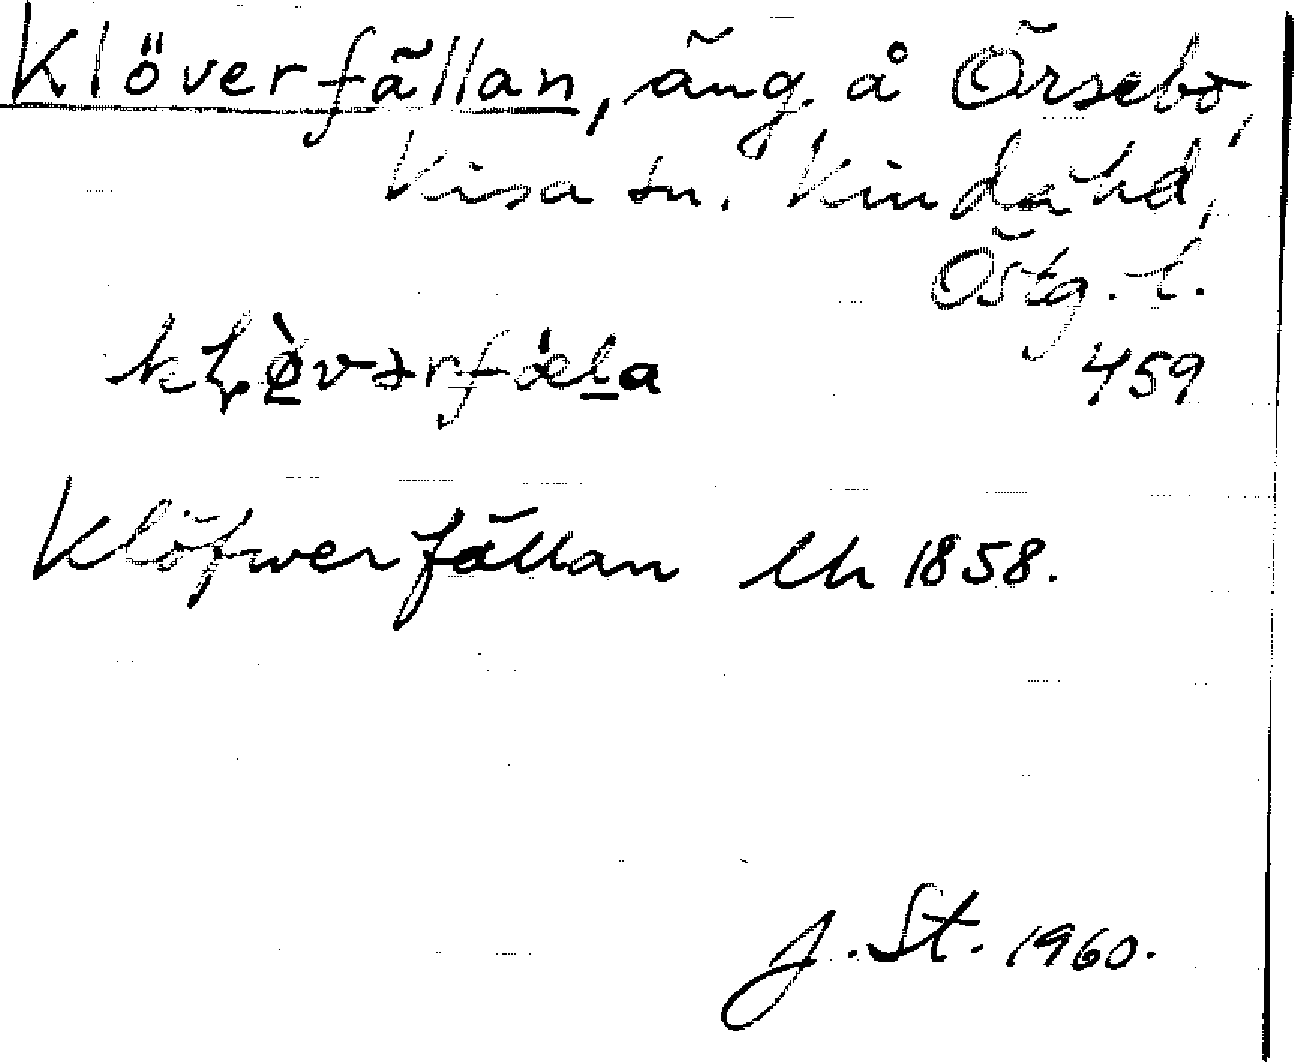 Klöverfällan, äng. å Örsebo,
Kisa sn. Kinda hd,
Östg. l.
459
Klöfwerfällan lh 1858.
J. St. 1960.